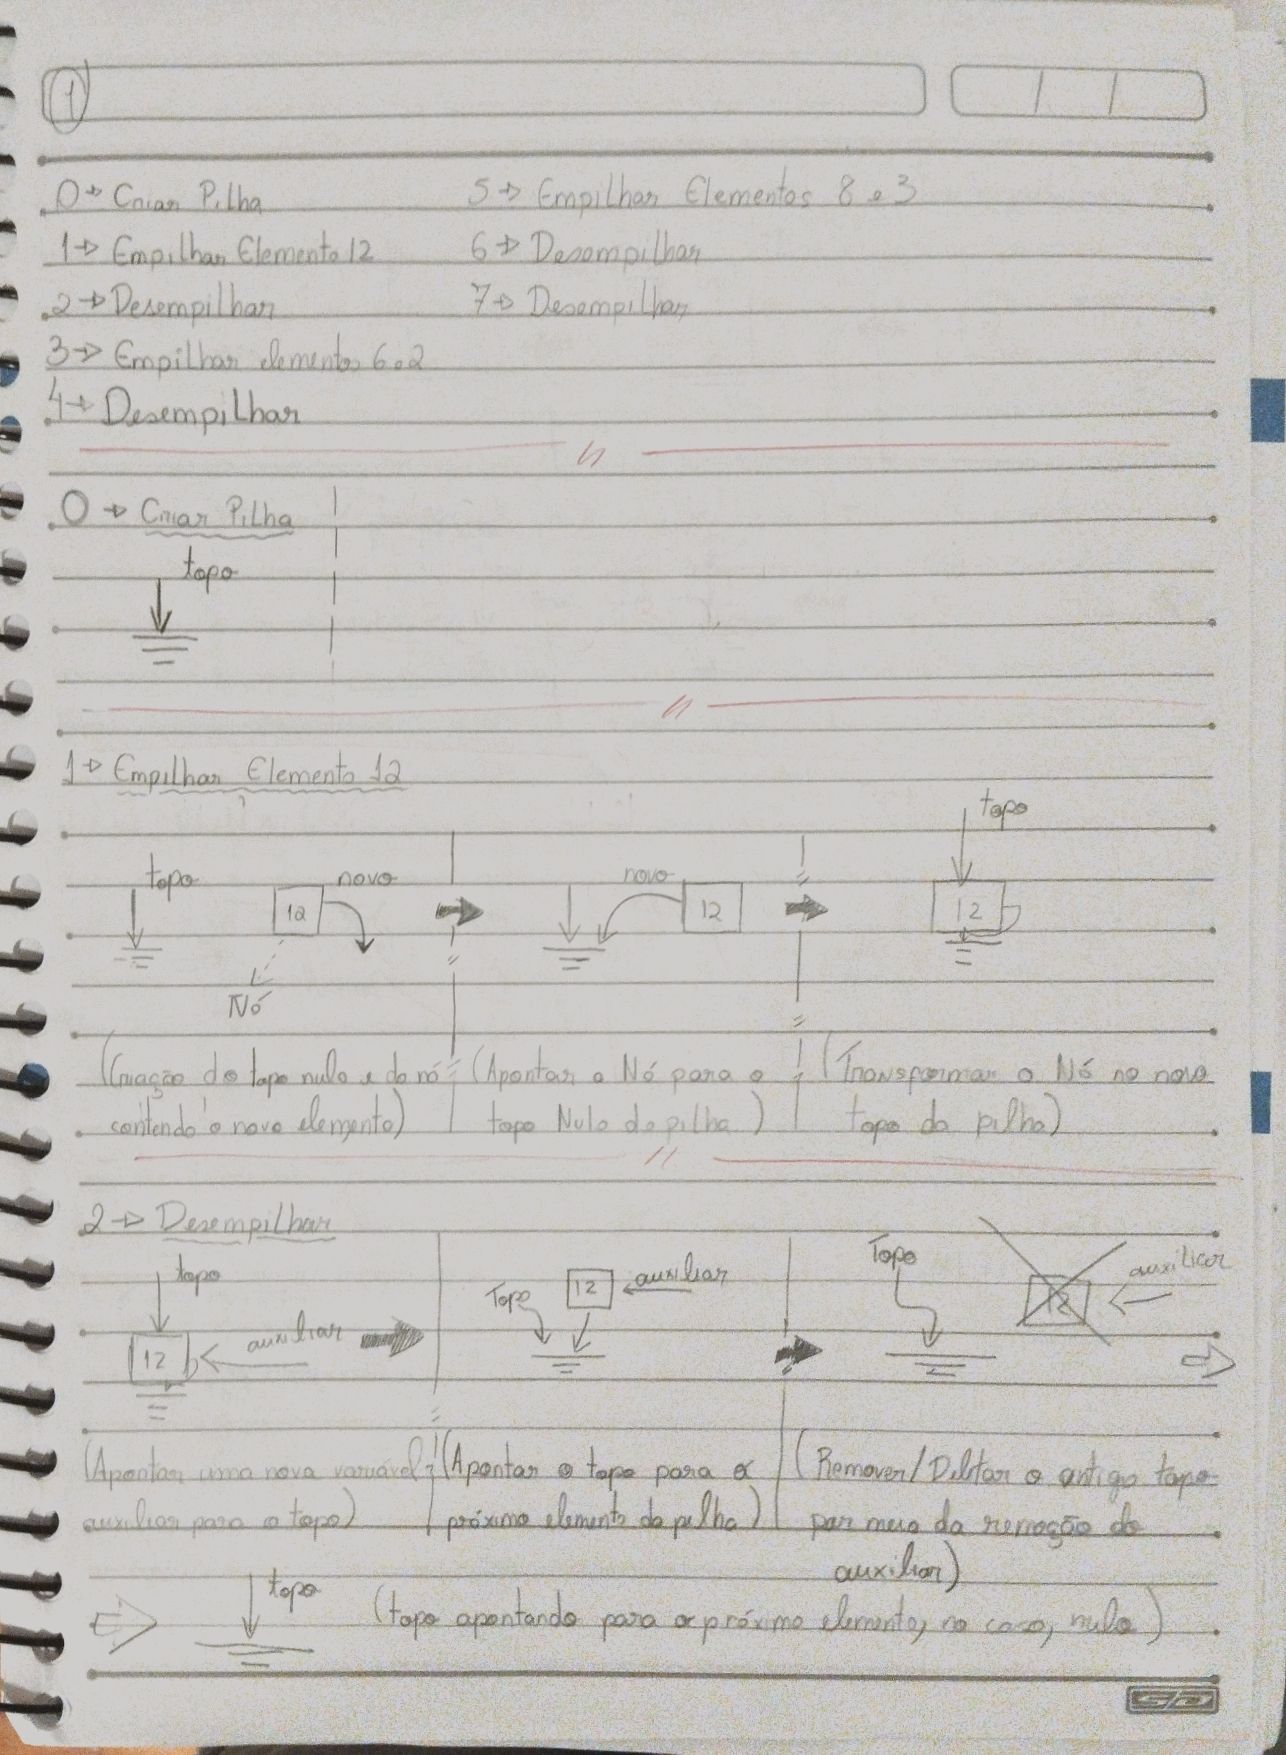 1
0 → Criar Pilha
1 → Empilhar Elemento 12
2 → Desempilhar
3 → Empilhar elementos 6 e 2
4 → Desempilhar
5 → Empilhar Elementos 8 e 3
6 → Desempilhar
7 → Desempilhar
0 → Criar Pilha
topo
1 → Empilhar Elemento 12
topo
12
novo
Nó
novo
12
topo
12
(Criação do topo nulo e do nó
contendo o novo elemento)
(Apontar o Nó para o
topo Nulo da pilha)
(Transformar o Nó no novo
topo da pilha)
2 → Desempilhar
topo
12
auxiliar
Topo
12
auxiliar
Topo
12
auxiliar
(Apontar uma nova variável
auxiliar para o topo)
(Apontar o topo para o
próximo elemento da pilha)
(Remover/Deletar o antigo topo
por meio da remoção do
auxiliar)
topo
(topo apontando para o próximo elemento, no caso, nulo)